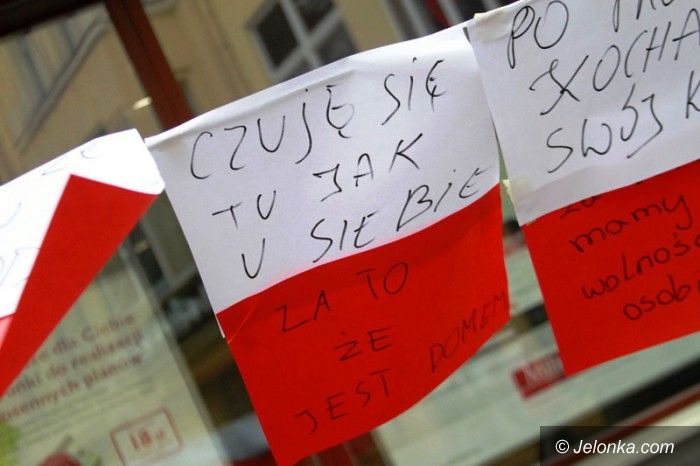 CZUJĘ SIĘ
TU JAK
U SIEBIE
ZA TO
ŻE
JEST DOMEM
PO
KOCHA
SWÓJ K
za
mamy
wolność
osob
dla Ciebie
do realizacji
planów
18
© Jelonka.com